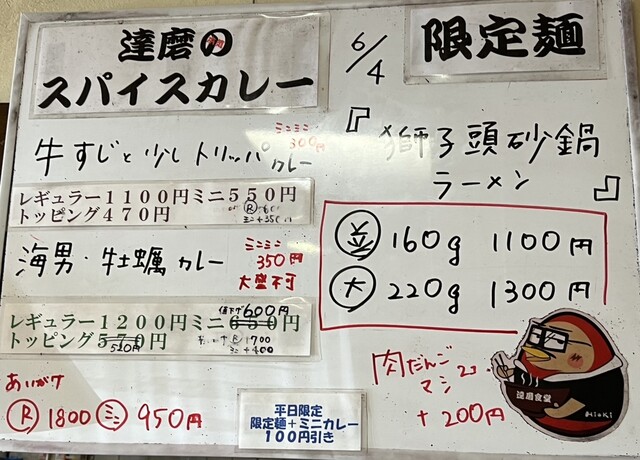 達磨の
スパイスカレー
6/4
限定麺
牛すじと少しトリッパカレー
ミニミニ
300円
レギュラー1100円ミニ550円
トッピング470円
海男・牡蠣カレー
ミニミニ
350円
大盛不可
値下げ600円
レギュラー1200円ミニ650円
トッピング570円
520円
あいがけ
Ⓡ1800 ミニ 950円
平日限定
限定麺+ミニカレー
100円引き
『獅子頭砂鍋
ラーメン』
並 160g 1100円
大 220g 1300円
肉だんご
マシ2コ
+200円
達磨食堂